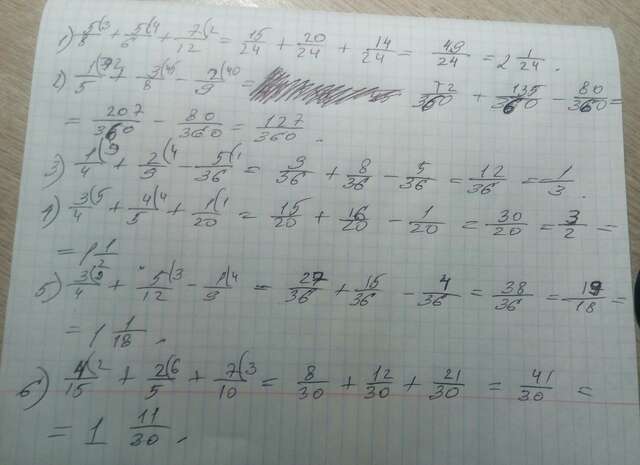 1) 5(3/8 + 5(4/6 + 7(2/12 = 15/24 + 20/24 + 14/24 = 49/24 = 2 1/24.
2) 1(72/5 + 3(45/8 - 2(40/9 = 72/360 + 135/360 - 80/360 =
= 207/360 - 80/360 = 127/360.
3) 1(9/4 + 2(4/9 - 5(1/36 = 9/36 + 8/36 - 5/36 = 12/36 = 1/3.
4) 3(5/4 + 4(4/5 + 1(1/20 = 15/20 + 16/20 - 1/20 = 30/20 = 3/2 =
= 1 1/2
5) 3(9/4 + 5(3/12 - 1(4/9 = 27/36 + 15/36 - 4/36 = 38/36 = 19/18 =
= 1 1/18.
6) 4(2/15 + 2(6/5 + 7(3/10 = 8/30 + 12/30 + 21/30 = 41/30 =
= 1 11/30.